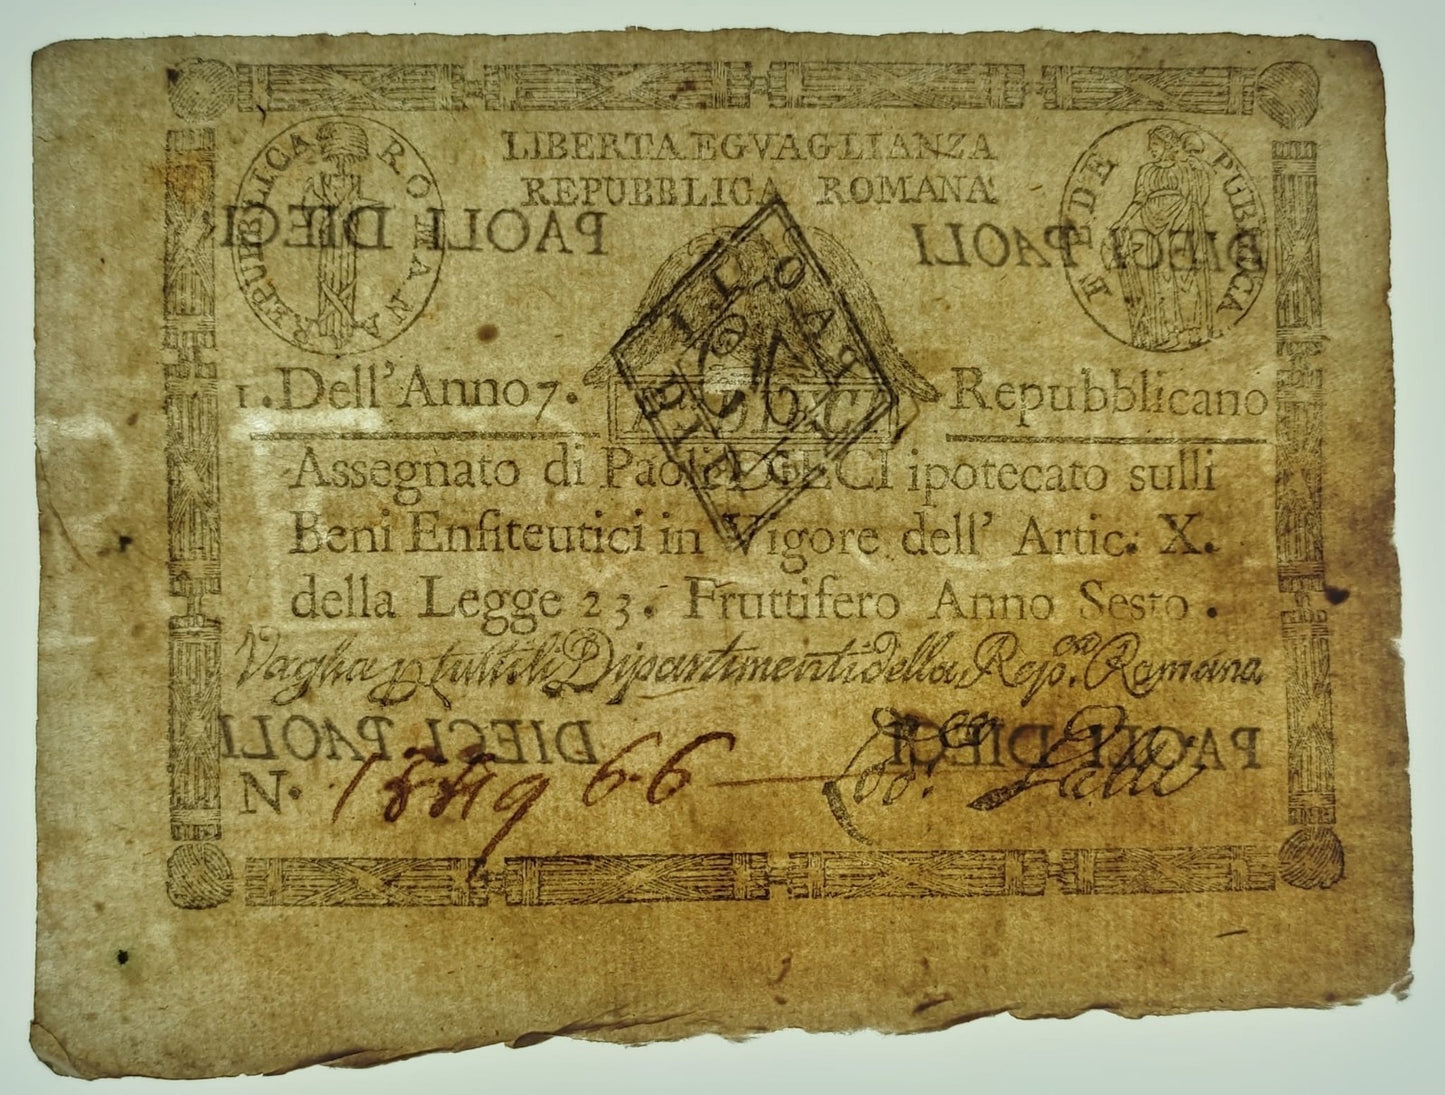 LIBERTA EGVAGLIANZA
REPUBBLICA ROMANA
REPUBBLICA ROMANA
FEDE PUBBLICA
PAOLI DIECI
DIECI PAOLI
1. Dell' Anno 7.
Repubblicano
Assegnato di Paoli DIECI ipotecato sulli
Beni Enfiteutici in Vigore dell' Artic. X.
della Legge 23. Fruttifero Anno Sesto.
Vaglia p tutti li Dipartimenti della Rep. Romana.
DIECI PAOLI
PAOLI DIECI
N.